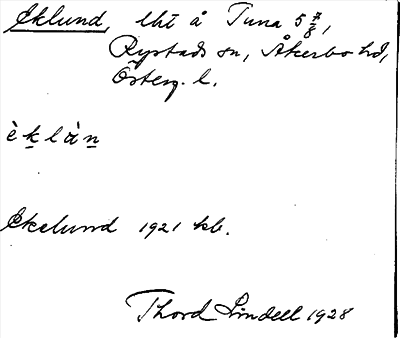 Eklund, lht å Tuna 5 2/8,
Rystads sn, Åkerbo hd,
Österg. l.
è k l à n
Ekelund 1921 kb.
Thord Lindell 1928